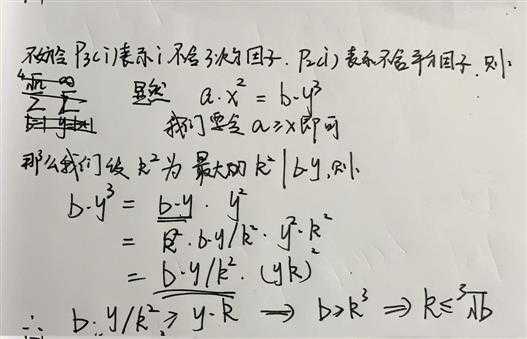 不妨令 P₃(i)表示i不含3次方因子. P₂(i) 表示不含平方因子. 则:
显然 a·x² = b·y³
我们要令 a≥x即可
那么我们设 k²为最大的 k² | b·y, 则:
b·y³ = b·y · y²
= k²·b·y/k² · y²·k²
= b·y/k² · (yk)²
∴ b·y/k² ≥ y·k → b≥k³ ⇒ k≤³√b